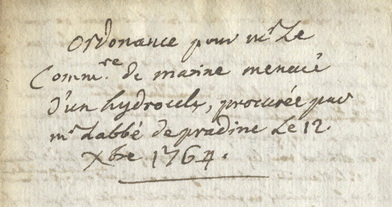 Ordonance pour mr Le
Commre de marine menacé
d'un hydrocele, procurée par
mr Labbé de pradine Le 12.
Xbre 1764.